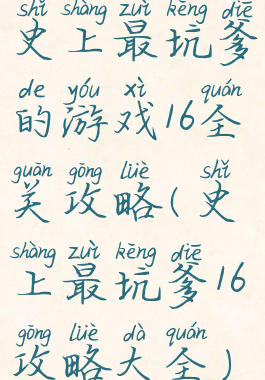 shǐ shàng zuì kēng diē
史上最坑爹
de yóu xì quán
的游戏16全
guān gōng lüè shǐ
关攻略(史
shàng zuì kēng diē
上最坑爹16
gōng lüè dà quán
攻略大全)